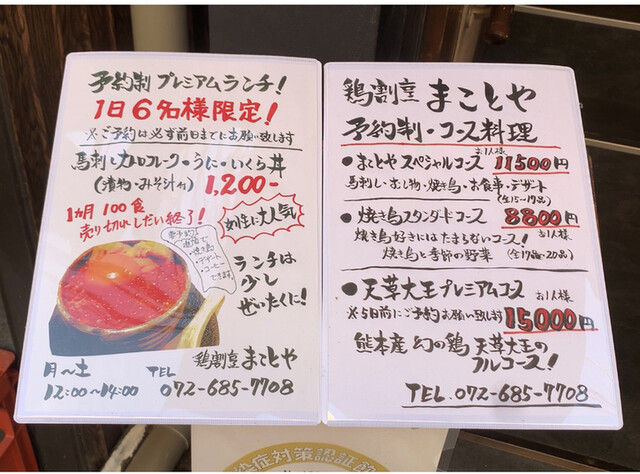 予約制プレミアムランチ!
1日6名様限定!
※ご予約は必ず前日までにお願い致します
馬刺しカルフレーク・うに・いくら丼
(漬物・みそ汁付) 1,200-
1ヵ月100食
売り切れしだい終了!
女性に大人気
ランチは
少し
ぜいたくに!
鶏割烹 まことや
月〜土 TEL
12:00〜14:00 072-685-7708
鶏割烹 まことや
予約制・コース料理
お1人様
●まことやスペシャルコース 11500円
馬刺し・むし物・焼き鳥・お食事・デザート
●焼き鳥スタンダードコース 8800円
お1人様
焼き鳥好きにはたまらないコース!
焼き鳥と季節の野菜 (全17品〜20品)
●天草大王プレミアムコース お1人様
※5日前にご予約お願い致します 15000円
熊本産 幻の鶏 天草大王の
フルコース!
TEL.072-685-7708
症対策認証